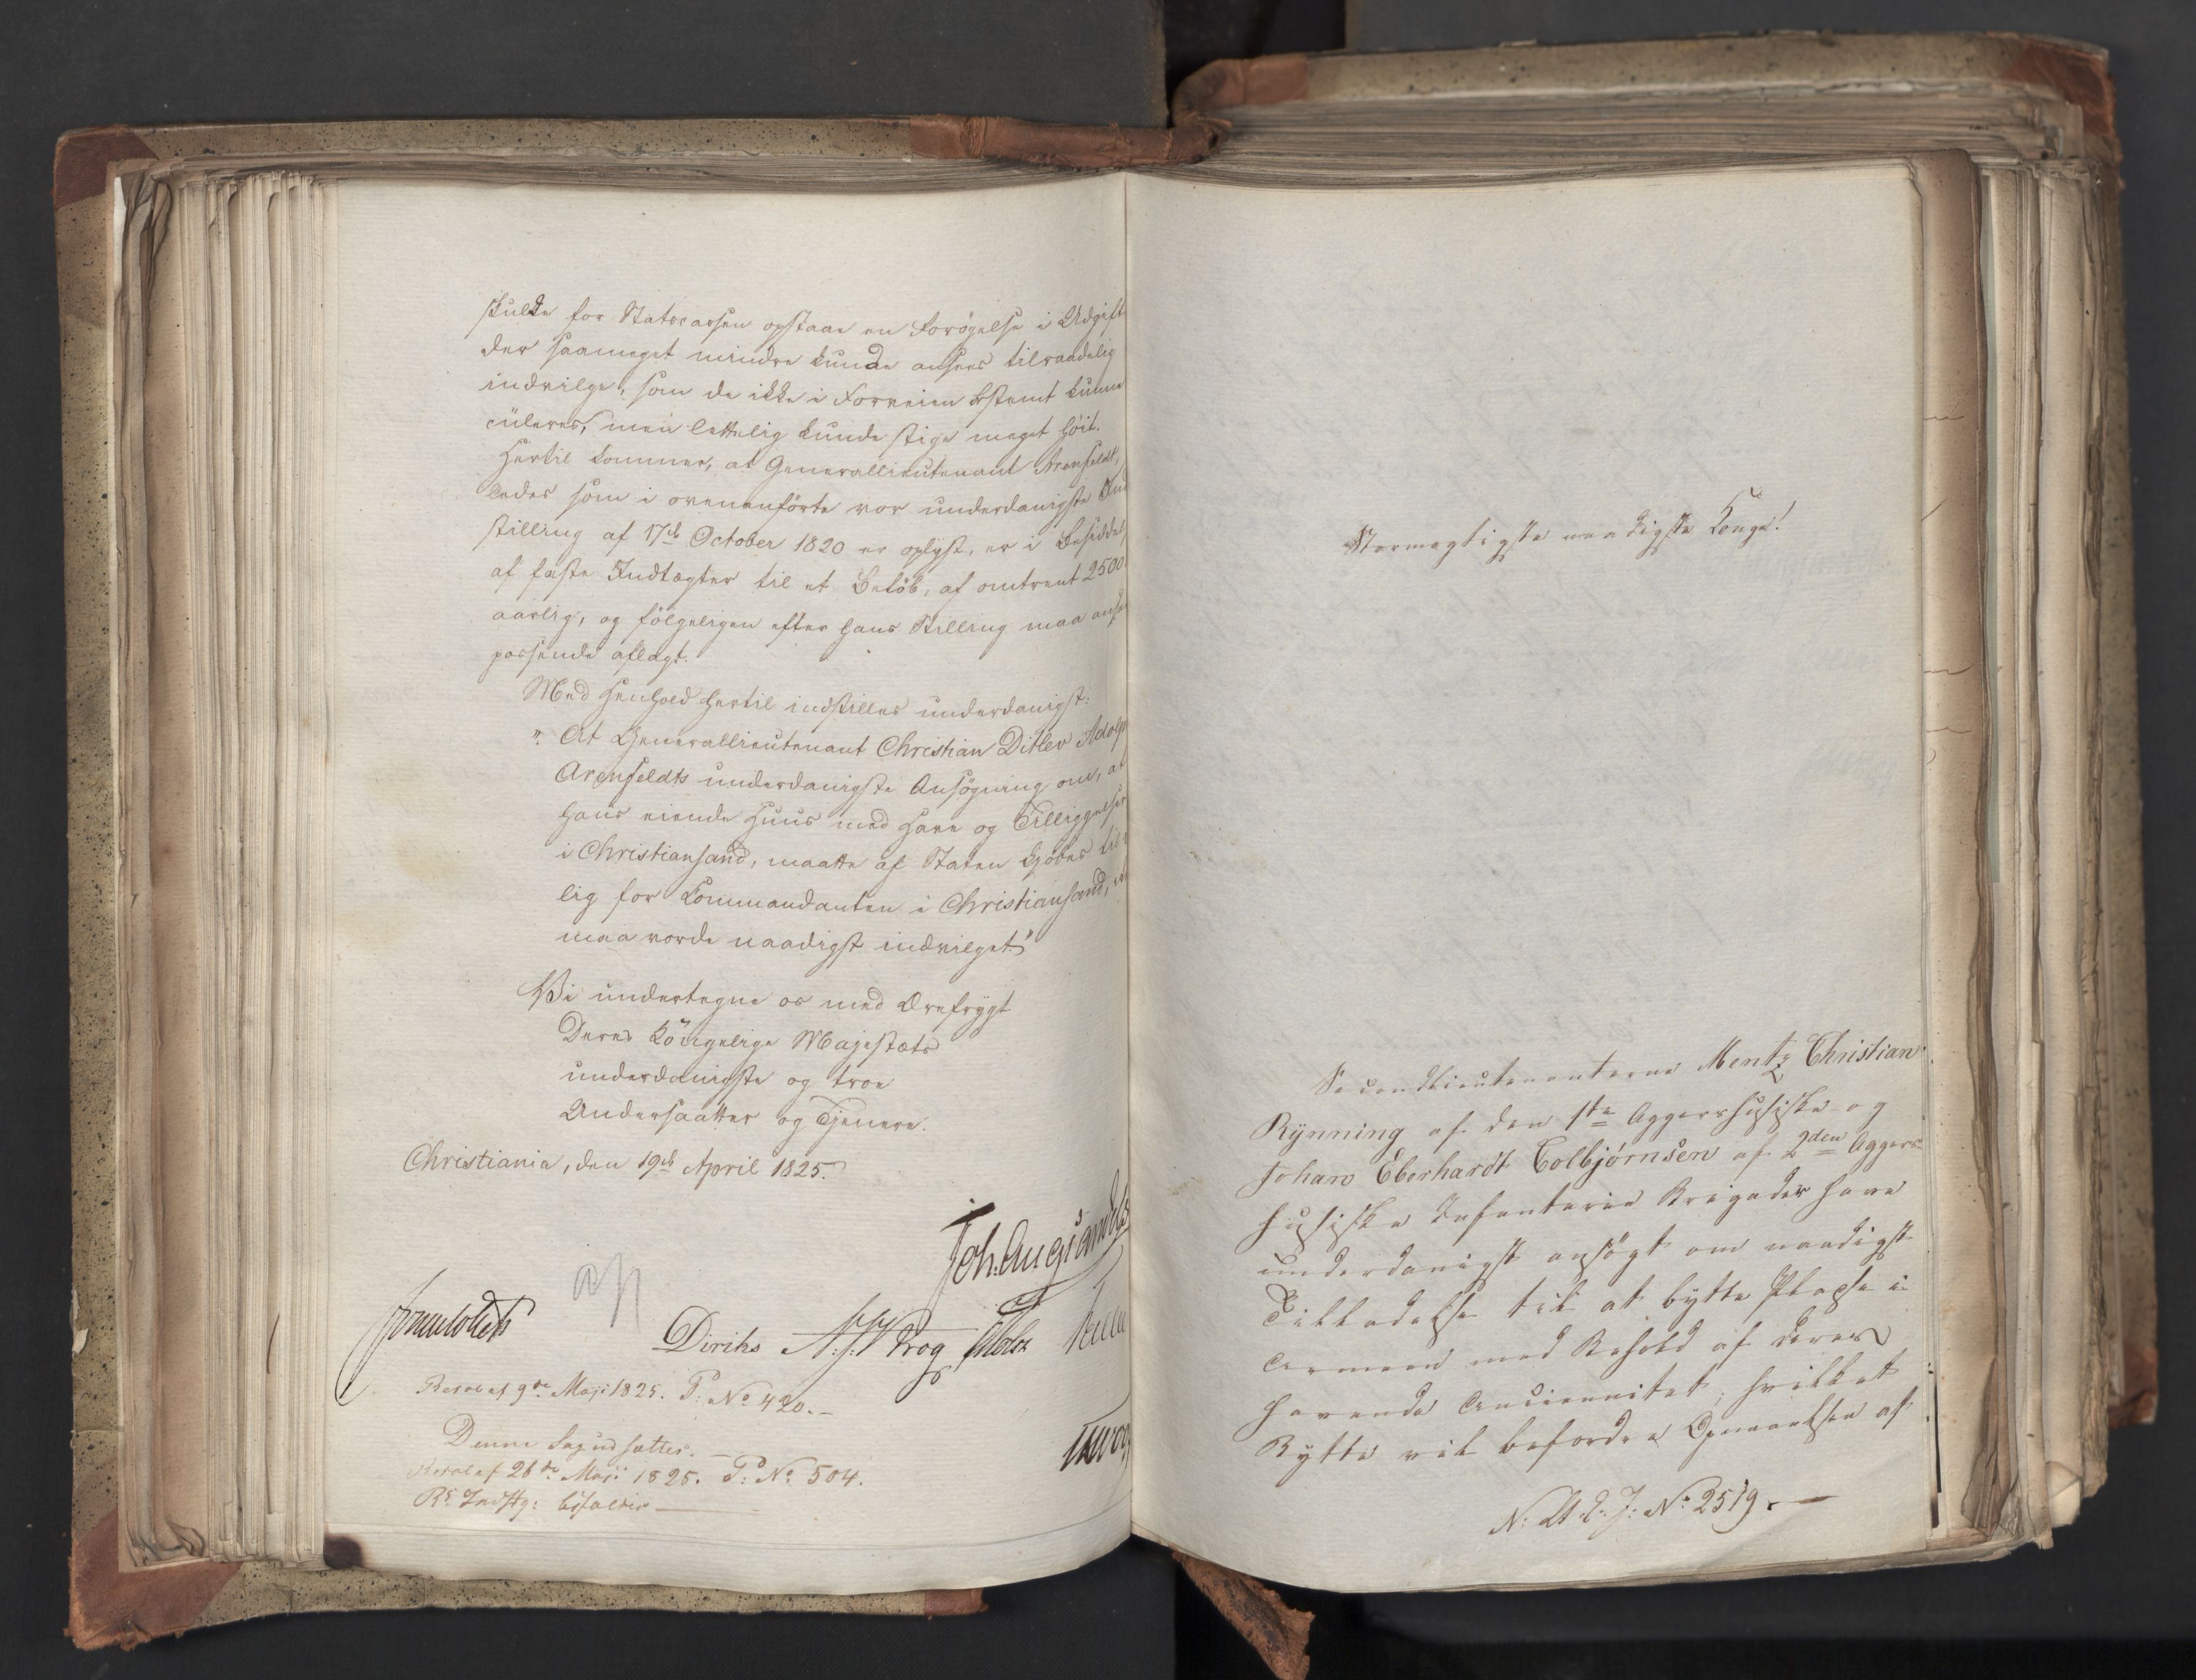 skulde for Statscassen opstaae en Forøgelse i Udgift
der saameget mindre kunde ansees tilraadelig
indvilge, som de ikke i Forveien bestemt kunne
culeres, men lettelig kunde stige meget høit.
Hertil kommer, at Generallieutenant Arenfeldt,
ledes som i ovenanførte vor underdanigste Ind
stilling af 17de October 1820 er oplyst, er i Besiddel
af faste Indtægter til et Beløb, af omtrent 2500
aarlig, og følgeligen efter hans Stilling maa anse
passende aflagt.
Med Henhold hertil indstilles underdanigst:
"At Generallieutenant Christian Ditlev Adolph
Arenfeldts underdanigste Ansøgning om, at
hans eiende Huus med Have og Tilliggelser
i Christiansand, maatte af Staten kjøbes til
lig for Kommandanten i Christiansand,
maa vorde naadigst indvilget."
Vi undertegne os med Ærefrygt
Deres Kongelige Majestæts
underdanigste og troe
Undersaatter og Tjenere.
Christiania, den 19de April 1825.
Joh. Aug. Sandels
Sommerfeldt
Diriks
Krog
Resol af 9de Maji 1825. P: No 420.-
Denne Sag udsættes. -
Resol af 26de Maji 1825. P: No 504.
Rs Indstg: bifaldes -
Stormægtigste naadigste Konge!
Secondlieutenanterne Mentz Christian
Rynning af den 1ste Aggershusiske og
Johan Eberhardt Colbjørnsen af 2den Aggers-
husiske Infanterie Brigader have
underdanigst ansøgt om naadigst
Tilladelse til at bytte Pladse i
Armeen med Behold af deres
havende Anciennitet, hvilket
Bytte vil befordre Opnaaelsen af
No 2519. -